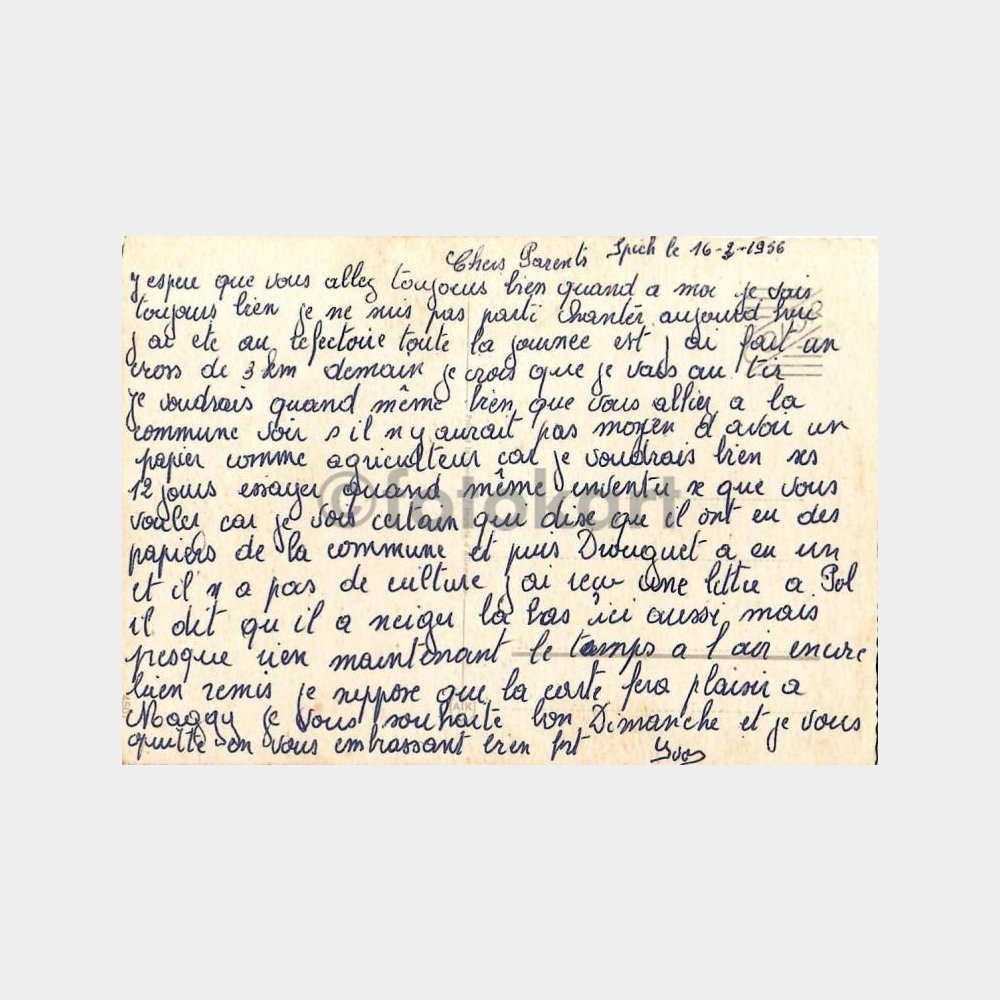 Chers Parents Spich le 16-2-1956
j espere que vous allez toujours bien quand a moi je vais
toujours bien je ne suis pas parti chanter aujourd hui
j ai ete au refectoire toute la journee est j ai fait un
cross de 3 km demain je crois que je vais au tir
je voudrais quand même bien que vous alliez a la
commune voir s il n y aurait pas moyen d avoir un
papier comme agriculteur car je voudrais bien ses
12 jours essayer quand même inventu se que vous
vouler car je vois certain qui dise qu il ont eu des
papiers de la commune et puis Drouguet a eu un
et il n a pas de culture j ai reçu une lettre a Pol
il dit qu il a neiger là bas ici aussi mais
presque rien maintenant le temps a l air encure
bien remis je suppose que la carte fera plaisir a
Maggy je vous souhaite bon Dimanche et je vous
quitte en vous embrassant bien fort Yvon
©fotokart
ATK